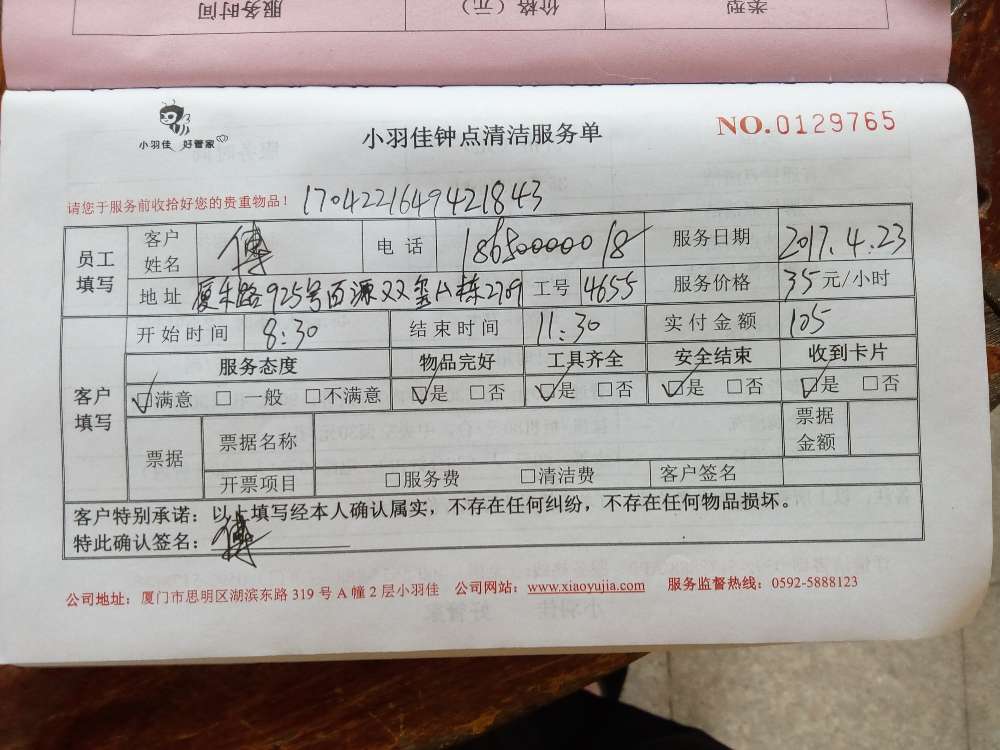 服务时间 价格（元） 类型
小羽佳 好管家
小羽佳钟点清洁服务单
NO.0129765
请您于服务前收拾好您的贵重物品！ 1704221649421843
员工填写 客户姓名 傅 电话 18650000018 服务日期 2017.4.23
地址 厦禾路925号百源双玺A栋2709 工号 4655 服务价格 35元/小时
客户填写 开始时间 8:30 结束时间 11:30 实付金额 105
服务态度 物品完好 工具齐全 安全结束 收到卡片
☑满意 □一般 □不满意 ☑是 □否 ☑是 □否 ☑是 □否 ☑是 □否
票据 票据名称 票据金额
开票项目 □服务费 □清洁费 客户签名
客户特别承诺：以上填写经本人确认属实，不存在任何纠纷，不存在任何物品损坏。
特此确认签名：傅
公司地址：厦门市思明区湖滨东路 319 号 A 幢 2 层小羽佳 公司网站：www.xiaoyujia.com 服务监督热线：0592-5888123